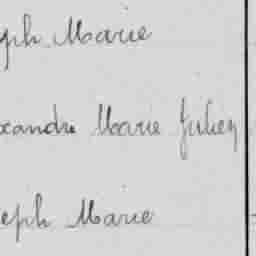 ph Marie
xandre Marie Julien
eph Marie